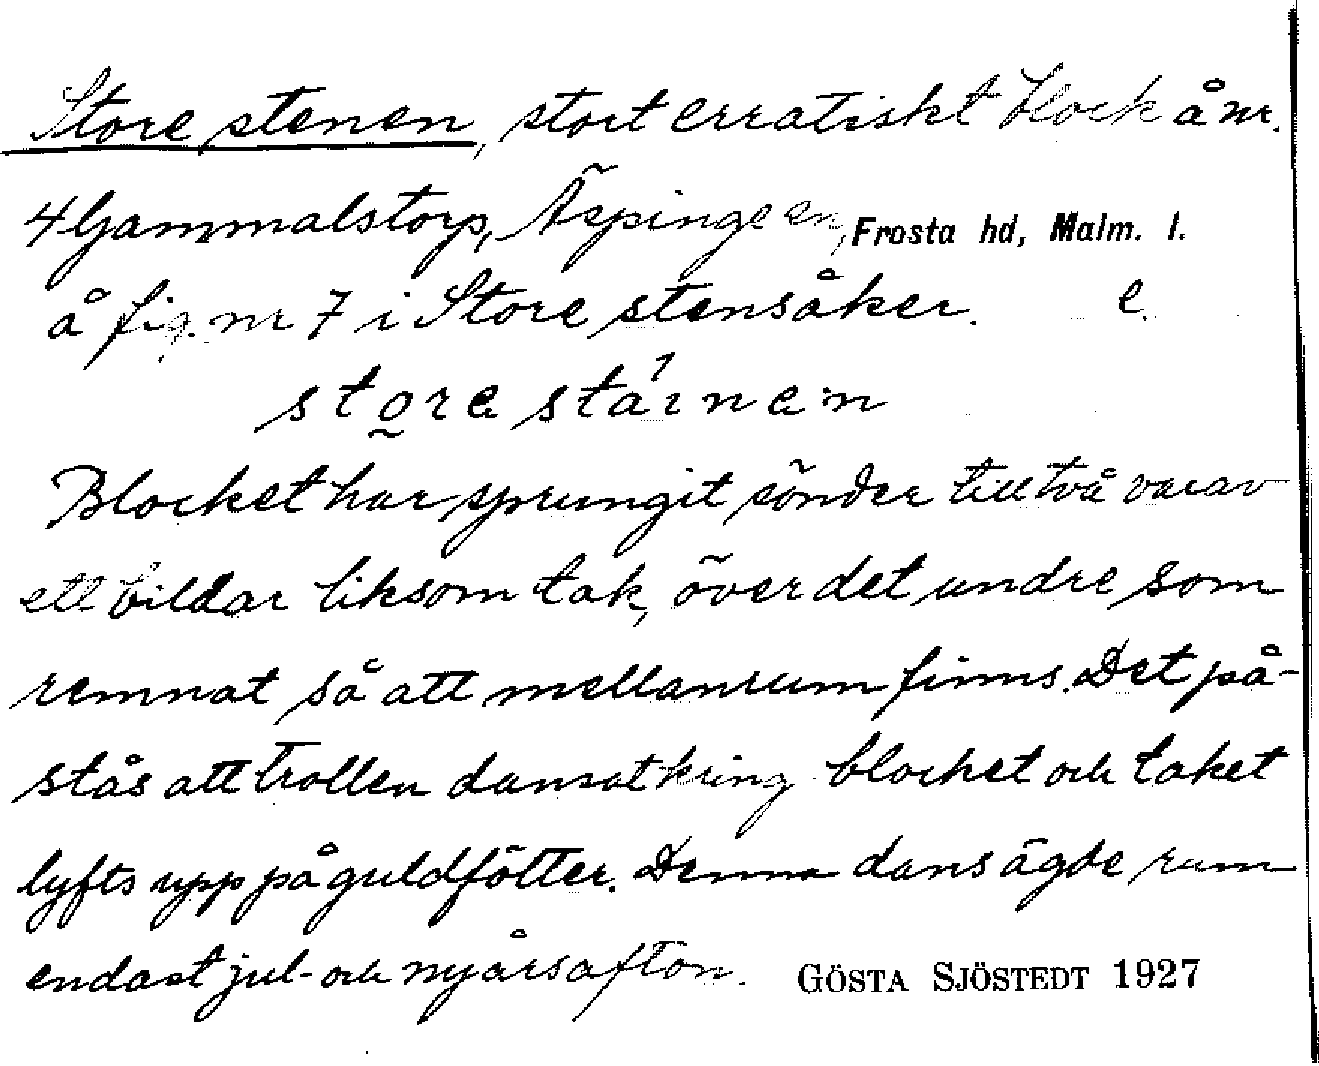 Store stenen, stort erratiskt block å nr.
4 Gammalstorp, Äspinge sn, Frosta hd, Malm. l.
å fig. nr 7 i Store stensåker. e.
store stáinen
Blocket har sprungit sönder till två varav
ett bildar liksom tak, över det undre som
remnat så att mellanrum finns. Det på-
stås att trollen dansat kring blocket och taket
lyfts upp på guldfötter. Denna dans ägde rum
endast jul- och nyårsafton. GÖSTA SJÖSTEDT 1927